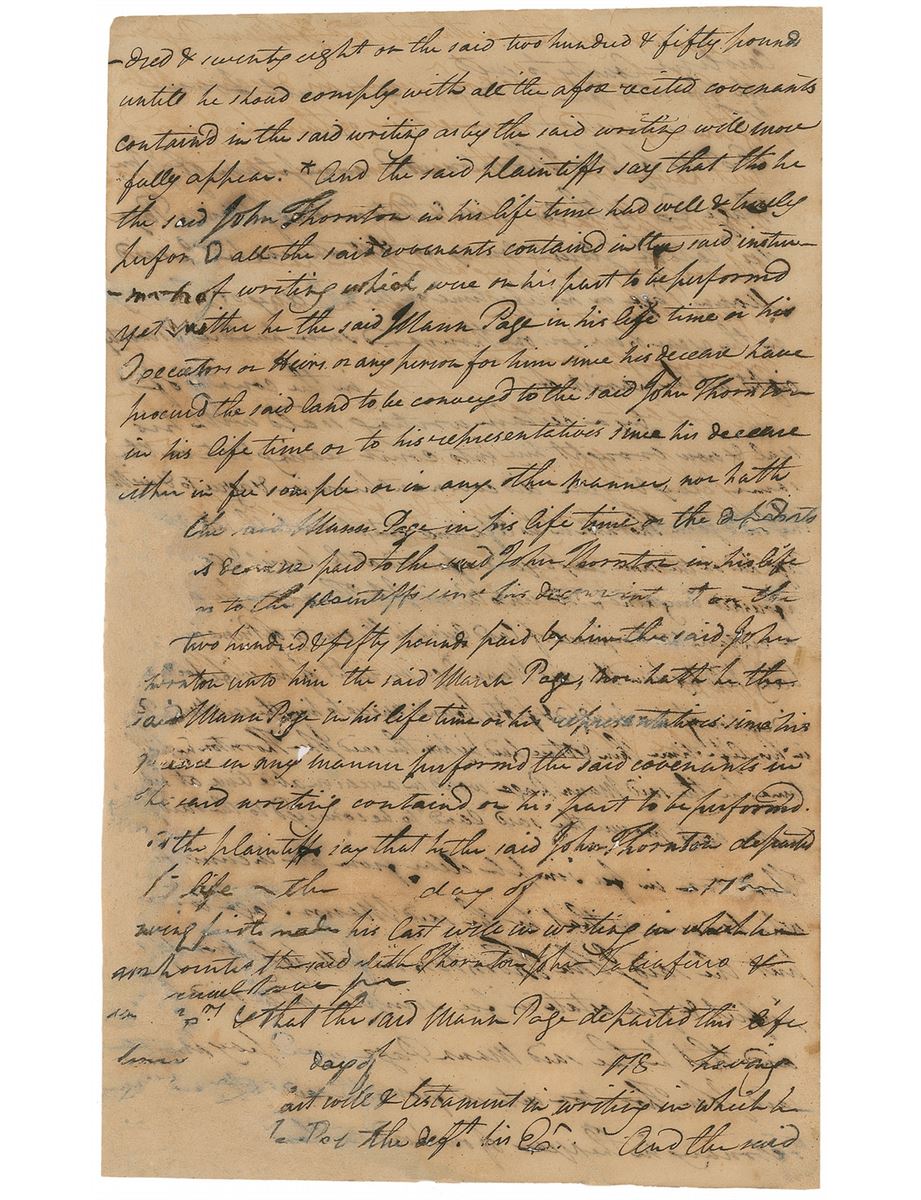 -dred & seventy eight on the said two hundred & fifty pounds
untill he should comply with all the afore recited covenants
contain'd in the said writing as by the said writing will more
fully appear. * And the said plaintiffs say that tho he
the said John Thornton in his life time had well & truly
perform'd all the said covenants contained in the said instru-
of writing which were on his part to be performed
yet neither he the said Mann Page in his life time or his
Executors or Heirs or any person for him since his decease have
procured the said land to be conveyed to the said John Thornton
in his life time or to his representatives since his decease
either in fee simple or in any other manner, nor hath
the said Mann Page in his life time or the
paid to the said John Thornton in his life
to the plaintiffs since his on the
two hundred & fifty pounds paid by him the said John
Thornton unto him the said Mann Page, nor hath he the
said Mann Page in his life time or his representatives since his
in any manner perform'd the said covenants in
the said writing contain'd on his part to be performed.
the plaintiffs say that he the said John Thornton departed
life the day of
first made his last will in writing in which he
the said Thornton John Taliaferro &
that the said Mann Page departed this life
day of 178 having
will & testament in writing in which he
the deft. his And the said